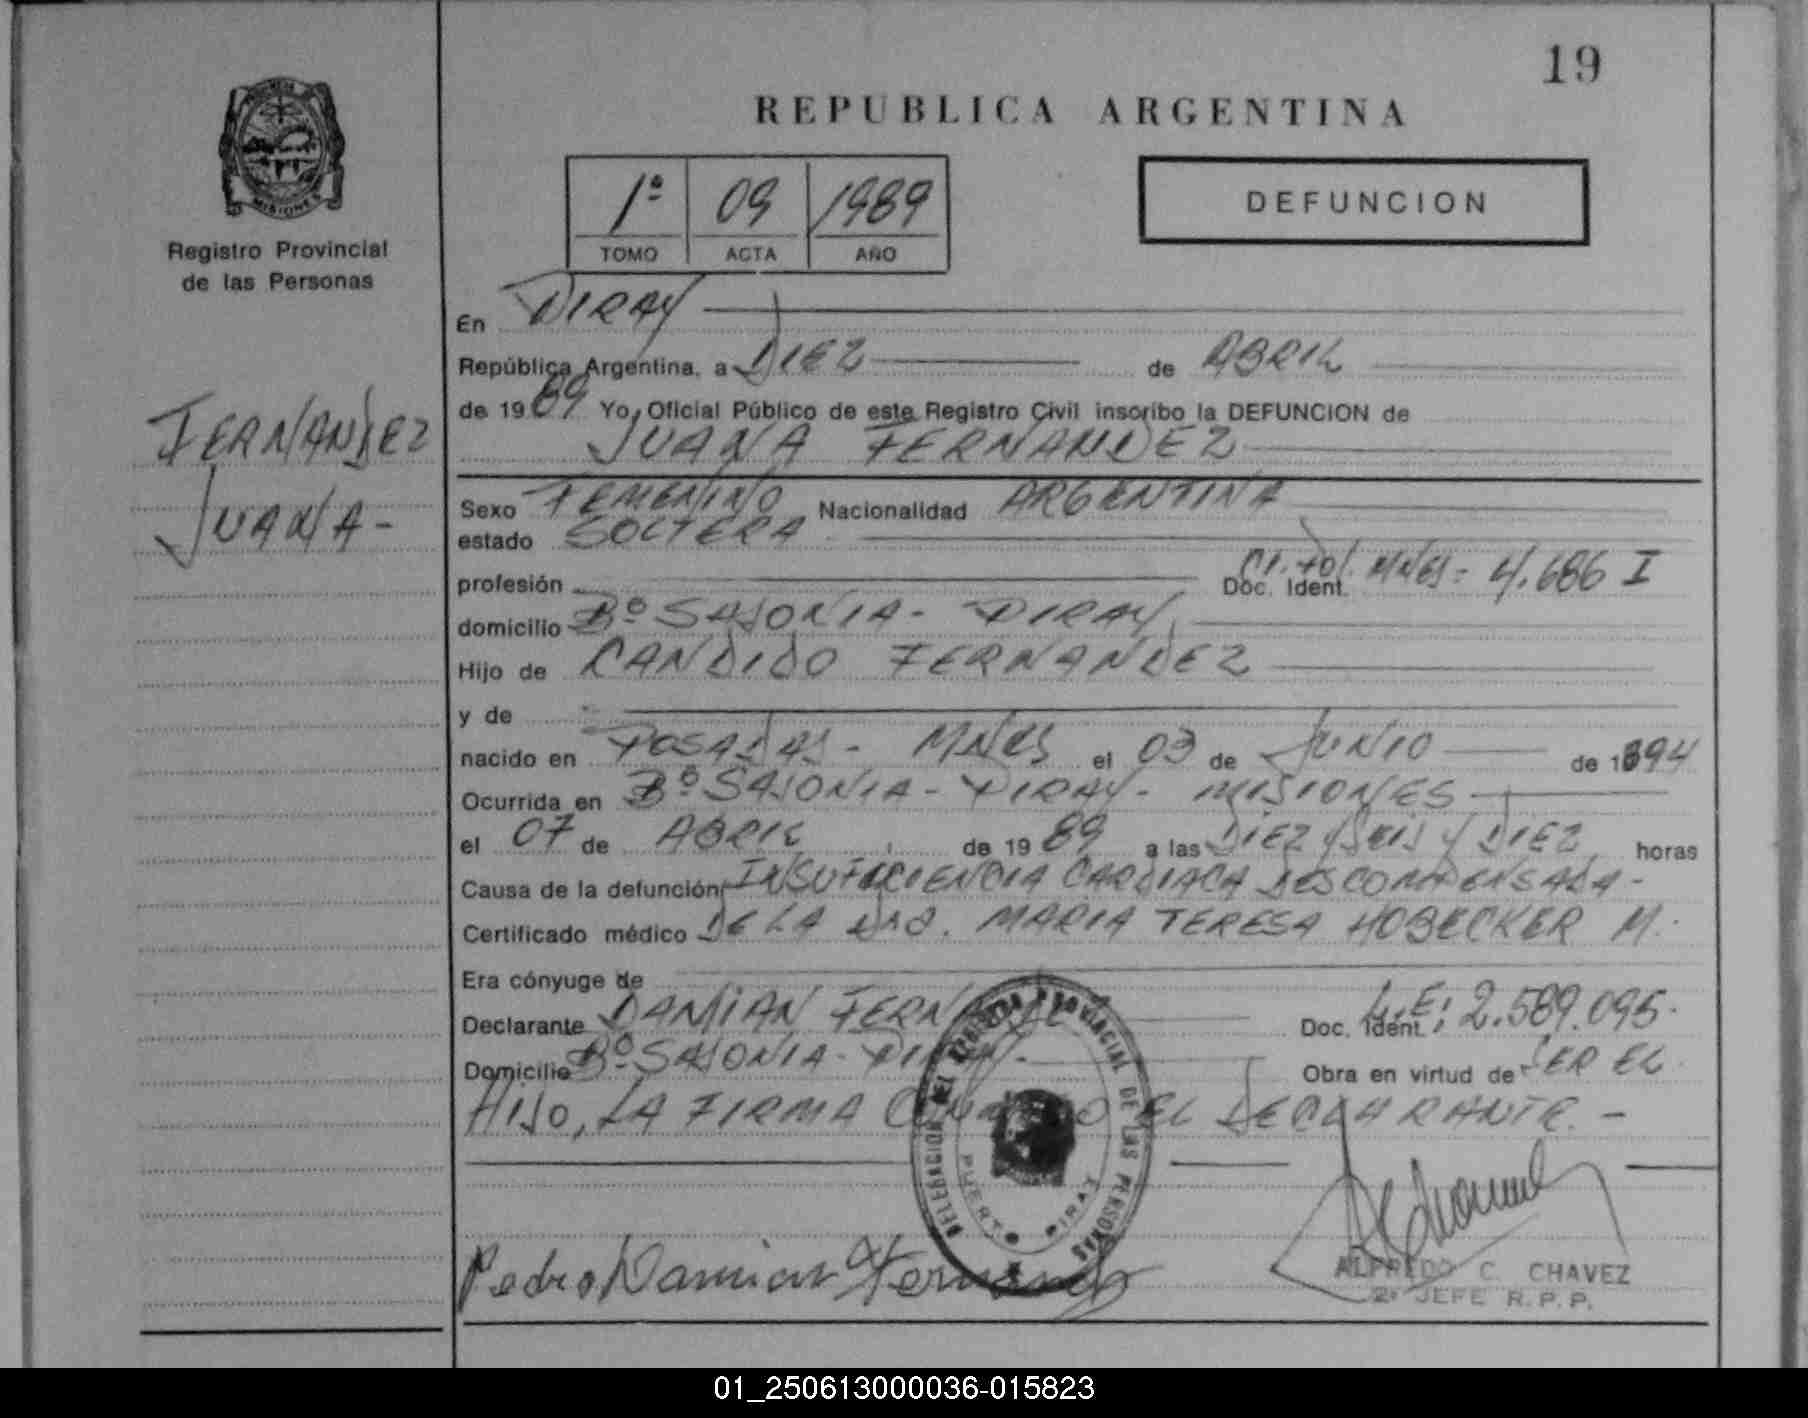 19
REPUBLICA ARGENTINA
MISIONES
Registro Provincial
de las Personas
1º 09 1989
TOMO ACTA AÑO
DEFUNCION
FERNANDEZ
JUANA-
En PIRAY
República Argentina, a DIEZ de ABRIL
de 1989 Yo, Oficial Público de este Registro Civil inscribo la DEFUNCION de
JUANA FERNANDEZ
Sexo FEMENINO Nacionalidad ARGENTINA
estado SOLTERA
profesión Doc. Ident. MNES= 4.686 I
domicilio Bº SAJONIA- PIRAY
Hijo de CANDIDO FERNANDEZ
y de
nacido en POSADAS- MNES el 03 de JUNIO de 1894
Ocurrida en Bº SAJONIA- PIRAY- MISIONES
el 07 de ABRIL de 1989 a las DIEZ y SEIS y DIEZ horas
Causa de la defunción INSUFICIENCIA CARDIACA DESCOMPENSADA-
Certificado médico DE LA DRA. MARIA TERESA HOBECKER M.
Era cónyuge de
Declarante DAMIAN FERNANDEZ Doc. Ident. L.E: 2.589.095.
Domicilio Bº SAJONIA- PIRAY- Obra en virtud de SER EL
HIJO, LA FIRMA CONMIGO EL DECLARANTE.-
DELEGACION DEL REGISTRO PROVINCIAL DE LAS PERSONAS
PUERTO PIRAY
Pedro Damian Fernandez
ALFREDO C. CHAVEZ
2º JEFE R.P.P.
01_250613000036-015823